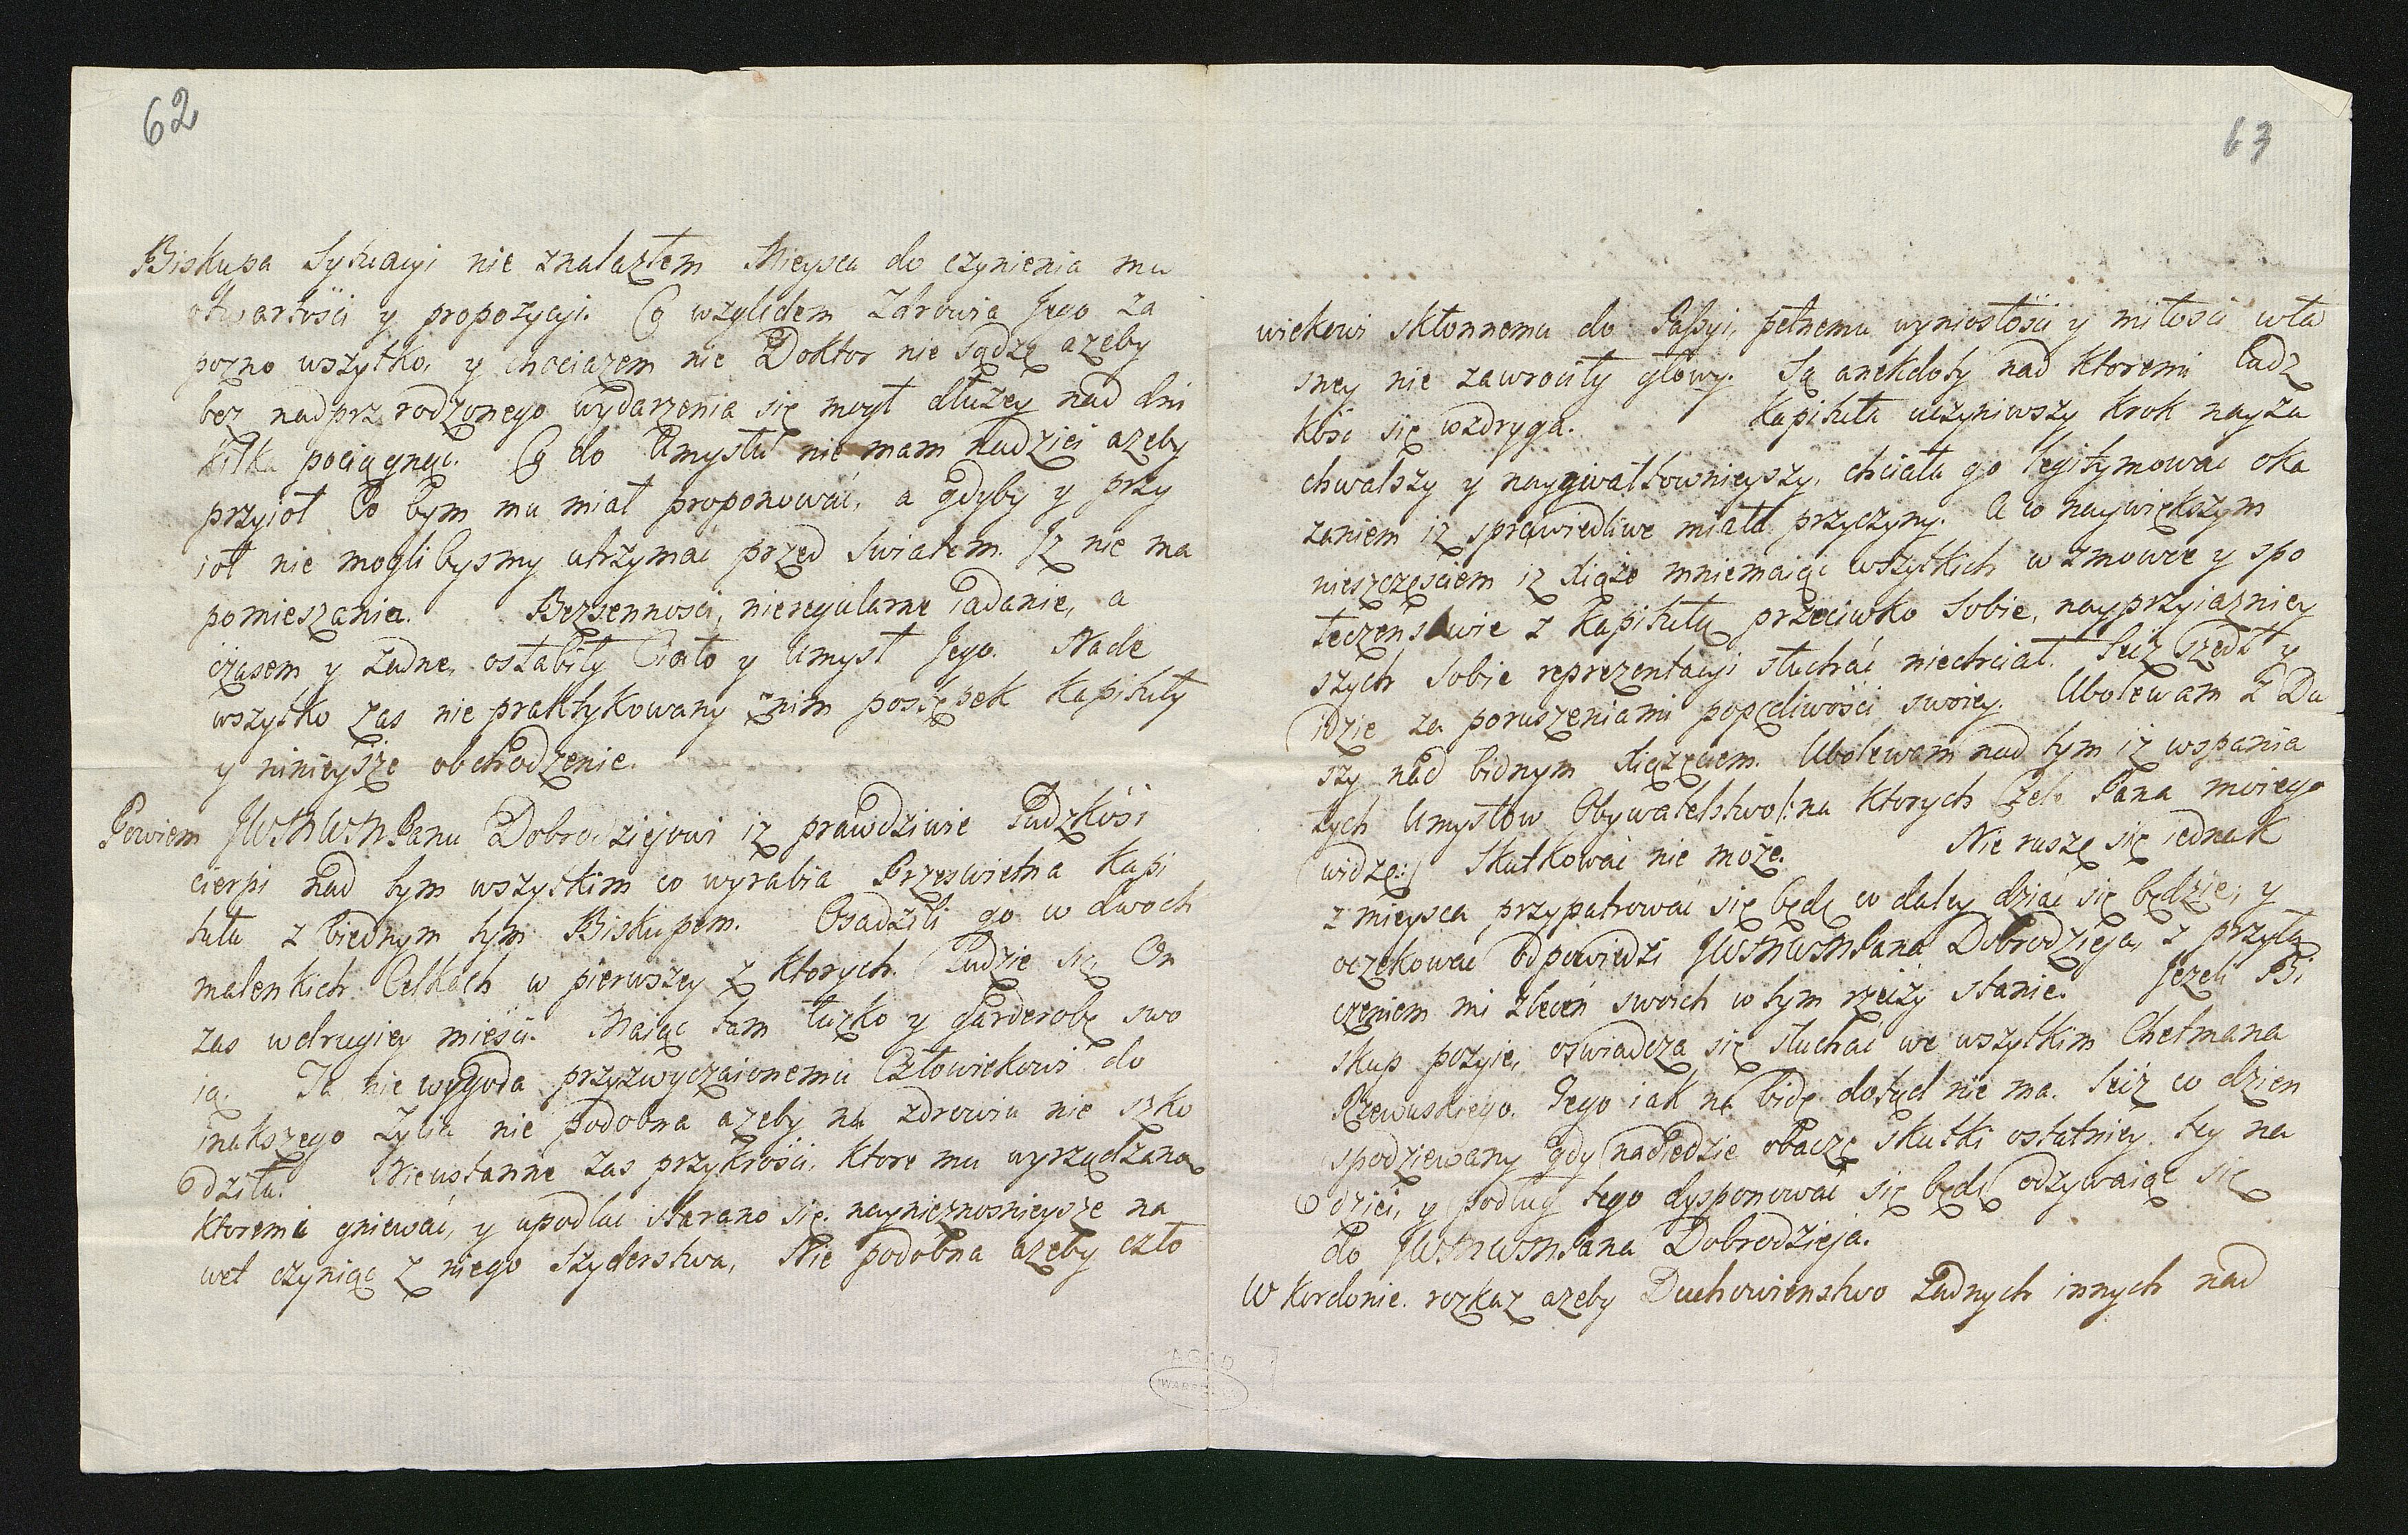 62
Biskupa Sytuacyi nie znalazłem Mieysca do czynienia mu
otwartości y propozycyi. Co względem Zdrowia Jego za
pozno wszytko, y chociazem nie Doktor nie sądzę azeby
bez nadprzyrodzonego wydarzenia się mogł dłużey nad dni
kilka pociągnąć. Co do Umysłu nie mam nadziei azeby
przyioł Co bym mu miał proponować, a gdyby y przy
ioł nie moglibysmy utrzymać przed swiatem. Iz nie ma
pomieszania. Bezsenności, nieregularne iadanie, a
czasem y żadne, osłabiły Ciało y Umysł Jego. Nade
wszytko zas nie praktykowany z nim postępek Kapituły
y ninieysze obchodzenie.
Powiem JWMWMPanu Dobrodziejowi iz prawdziwie Ludzkość
cierpi nad tym wszytkim co wyrabia Przeswietna Kapi
tuła z biednym tym Biskupem. Osadzili go w dwoch
malenkich Celkach w pierwszey z ktorych Ludzie się On
zas w drugiey mieści. Maiąc tam łuzko y garderobę swo
ią. Ta nie wygoda przyzwyczaionemu Człowiekowi do
inakszego Zycia nie podobna azeby na zdrowiu nie szko
dziła. Nieustanne zas przykrości, ktore mu wyrządzano
ktoremi gniewać, y upodlać starano się nayniesnosnieysze na
wet czyniąc z niego szyderstwa, Nie podobna azeby czło
63
wiekowi skłonnemu do Passyi, pełnemu wyniosłości y miłości wła
sney nie zawrociły głowy. Są anekdoty nad ktoremi ludz
kość się wzdryga. Kapituła uczyniwszy krok nayzu
chwalszy y naygwałtownieyszy, chciała go legitymować oka
zaniem iz sprawiedliwe miała przyczyny. A co naywiększym
nieszczęściem iz Xiąże mniemaiąc wszytkich w zmowie y spo
łeczenstwie z Kapitułą przeciwko Sobie, nayprzyiazniey
szych Sobie reprezentacyi słuchać niechciał. Lecz szedł y
idzie za poruszeniami popędliwości swoiey. Ubolewam z Du
szy nad bidnym Xiązęciem. Ubolewam nad tym iz wspania
łych Umysłow Obywatelstwo /:na ktorych Czele Pana moiego
widzę:/ Skutkować nie może. Nie ruszę się iednak
z mieysca przypatrować się będę co daley dziać się będzie, y
oczekować odpowiedzi JWMWMPana Dobrodzieja, z przyłą
czeniem mi zleceń swoich w tym rzeczy stanie. Jezeli Bi
skup pozyie, oświadcza się słuchać we wszytkim Chetmana
Rzewuskiego. Jego iak na bidę dotąd nie ma. Lecz co dzien
spodziewany gdy nadiedzie obaczę skutki ostatniey tey na
dziei, y podług tego dysponować się będę odzywaiąc się
do JWMWMPana Dobrodzieja.
W Kordonie rozkaz azeby Duchowienstwo żadnych innych nad
AGAD